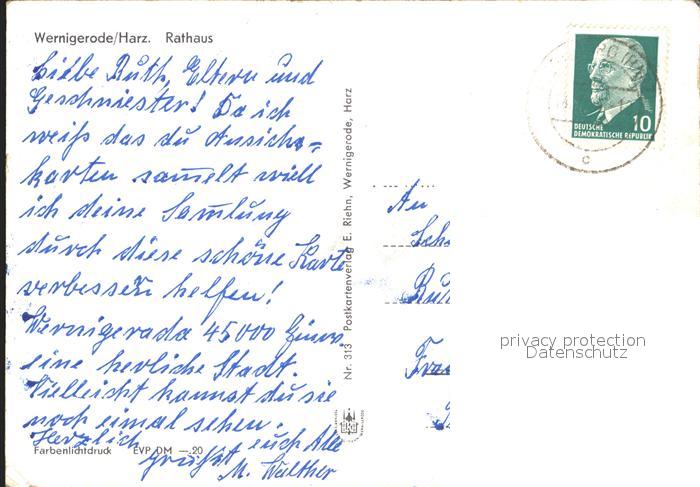 Wernigerode/Harz. Rathaus
Liebe Ruth, Eltern und
Geschwiester! Da ich
weiß das du Ansichs=
karten sam̅elt will
ich deine Sam̅lung
durch diese schöne Karte
verbessern helfen!
Wernigerada 45000 Einw.
eine herliche Stadt.
Vielleicht kannst du sie
noch eimal sehen.
Herzlich
grüßt euch Alle
M. Walther
Farbenlichtdruck EVP DM —.20
Nr. 313 Postkartenverlag E. Riehn, Wernigerode, Harz
10
DEUTSCHE
DEMOKRATISCHE REPUBLIK
c
An
Sch
Rut
Frau
privacy protection
Datenschutz